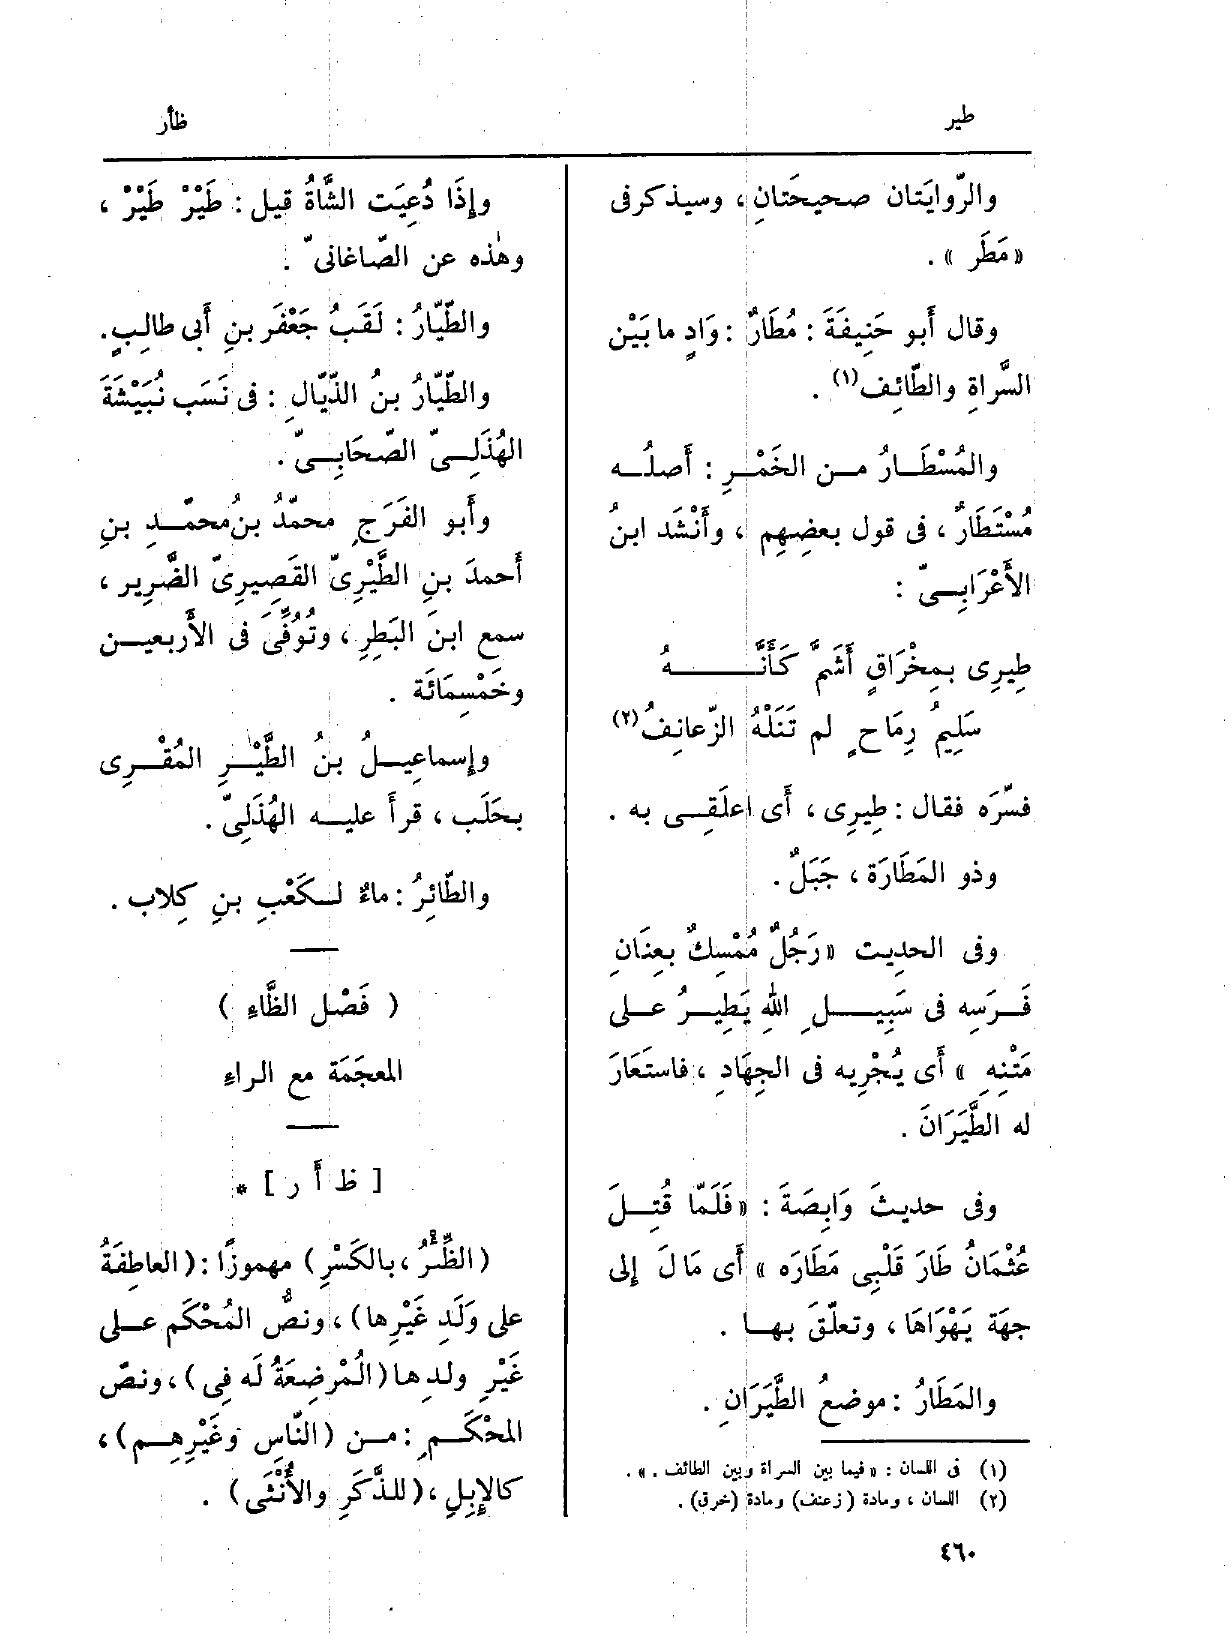 طير
ظأر
والرّوايَتان صحيحتَانِ ، وسيذكر فى
« مَطَر » .
وقال أَبو حَنِيفَةَ : مُطَارٌ : وَادٍ ما بَيْن
السَّراةِ والطّائِف(١) .
والمُسْطَارُ من الخَمْرِ : أَصلُه
مُسْتَطَارٌ ، فى قول بعضِهِم ، وأَنْشَد ابنُ
الأَعْرَابِىّ :
طِيرِى بمِخْرَاقٍ أَشَمَّ كَأَنَّهُ
سَلِيمُ رِمَاحٍ لم تَنَلْهُ الزّعانِفُ(٢)
فسّرَه فقال : طِيرِى ، أَى اعلَقِى به .
وذو المَطَارَة ، جَبَلٌ .
وفى الحدِيث « رَجُلٌ مُمْسِكٌ بعِنَانِ
فَرَسِه فى سَبِيلِ اللهِ يَطِيرُ على
مَتْنِهِ » أَى يُجْرِيه فى الجِهَادِ ، فاستَعَارَ
له الطَّيَرَانَ .
وفى حديثَ وَابِصَةَ : « فَلَمّا قُتِلَ
عُثْمَانُ طَارَ قَلْبِى مَطَارَه » أَى مَالَ إِلى
جهَة يَهْوَاهَا ، وتعلّقَ بها .
والمَطَارُ : موضعُ الطَّيَرَانِ .
(١) فى اللسان : « فيما بين السراة وبين الطائف . » .
(٢) اللسان ، ومادة (زعنف) ومادة (خرق) .
وإِذَا دُعِيَت الشَّاةُ قيل : طَيْرْ طَيْرْ ،
وهٰذه عن الصّاغانىّ .
والطّيّارُ : لَقَبُ جَعْفَر بنِ أَبى طالِبٍ.
والطّيّارُ بنُ الذّيّالِ : فى نَسَب نُبَيْشَةَ
الهُذَلِىّ الصّحَابِىّ .
وأَبو الفَرَجِ محمّدُ بنُ محمّدِ بنِ
أَحمدَ بنِ الطَّيْرِىّ القَصِيرِىّ الضَّرِير ،
سمع ابنَ البَطِرِ ، وتُوُفِّىَ فى الأَربعين
وخَمْسِمَائَة .
وإِسماعِيلُ بنُ الطَّيْرِ المُقْرِى
بحَلَب ، قرأَ عليه الهُذَلِىّ .
والطّائِرُ : ماءٌ لكَعْبِ بنِ كِلاب .
( فَصْل الظَّاءِ )
المعجَمَة مع الراءِ
[ ظ أَ ر ] *
(الظِّئْرُ ، بالكَسْرِ) مهموزًا : (العاطِفَةُ
على وَلَدِ غَيْرِها) ، ونصُّ المُحْكَم على
غَيْرِ ولدِها (الْمُرْضِعَةُ لَه فِى) ، ونصّ
المحْكَمِ : من (النّاسِ وغَيْرِهِم) ،
كالإِبِلِ ، (للذَّكَرِ والأُنْثَى) .
٤٦٠